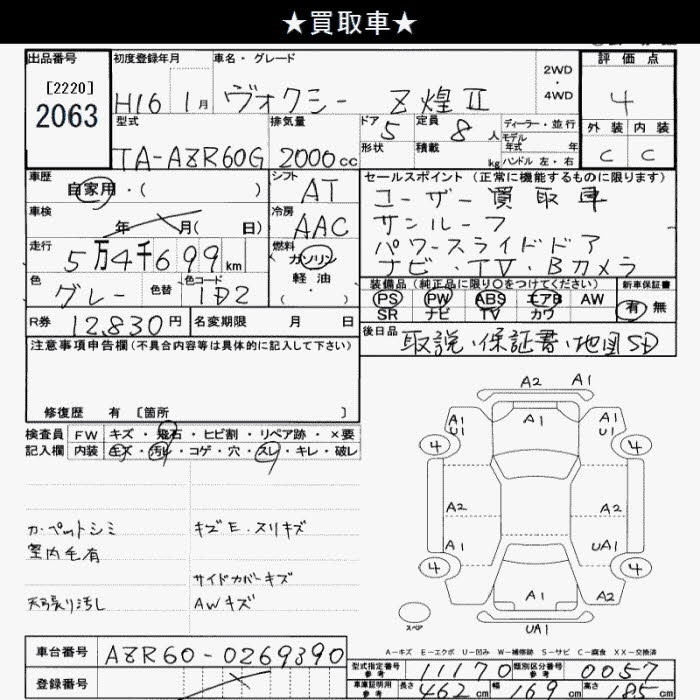 ★買取車★
出品番号 初度登録年月 車名・グレード 2WD・4WD 評価点
[2220]
2063
H16 1月 ヴォクシー Z煌Ⅱ 4
型式 排気量 ドア 5 定員 8人 ディーラー・並行 外装 内装
モデル年式 年
形状 積載 kg ハンドル 左・右
TA-AZR60G 2000cc C C
車歴 シフト セールスポイント (正常に機能するものに限ります)
自家用・( ) AT ユーザー買取車
車検 冷房 サンルーフ
年 月( 日) AAC パワースライドドア
走行 燃料 ナビ・TV・Bカメラ
5万4千699km ガソリン
軽油・( )
色 色替 色コード 装備品 (純正品に限り○をつけてください) 新車保証書
グレー 1D2 PS PW ABS エアB AW 有 無
SR ナビ TV カワ
R券 12,830円 名変期限 月 日 後日品
取説、保証書、地図SD
注意事項申告欄 (不具合内容等は具体的に記入して下さい)
修復歴 有 [箇所 ]
検査員 FW キズ・飛石・ヒビ割・リペア跡・×要
記入欄 内装 キズ・汚れ・コゲ・穴・スレ・キレ・破レ
A2 A1
A1 U1 A1 A1 U1
4 4
A2 A2
カーペットシミ キズE・スリキズ
室内毛有
A1 UA1
サイドカバーキズ
4 4
天張り汚し AWキズ
A1 A2
スペア
UA1
A-キズ E-エクボ U-凹み W-補修跡 S-サビ C-腐食 XX-交換済
車台番号 AZR60-0269390
型式指定番号 参考 11170 類別区分番号 参考 0057
登録番号
車庫証明用 参考 長さ 462cm 幅 169cm 高さ 185cm